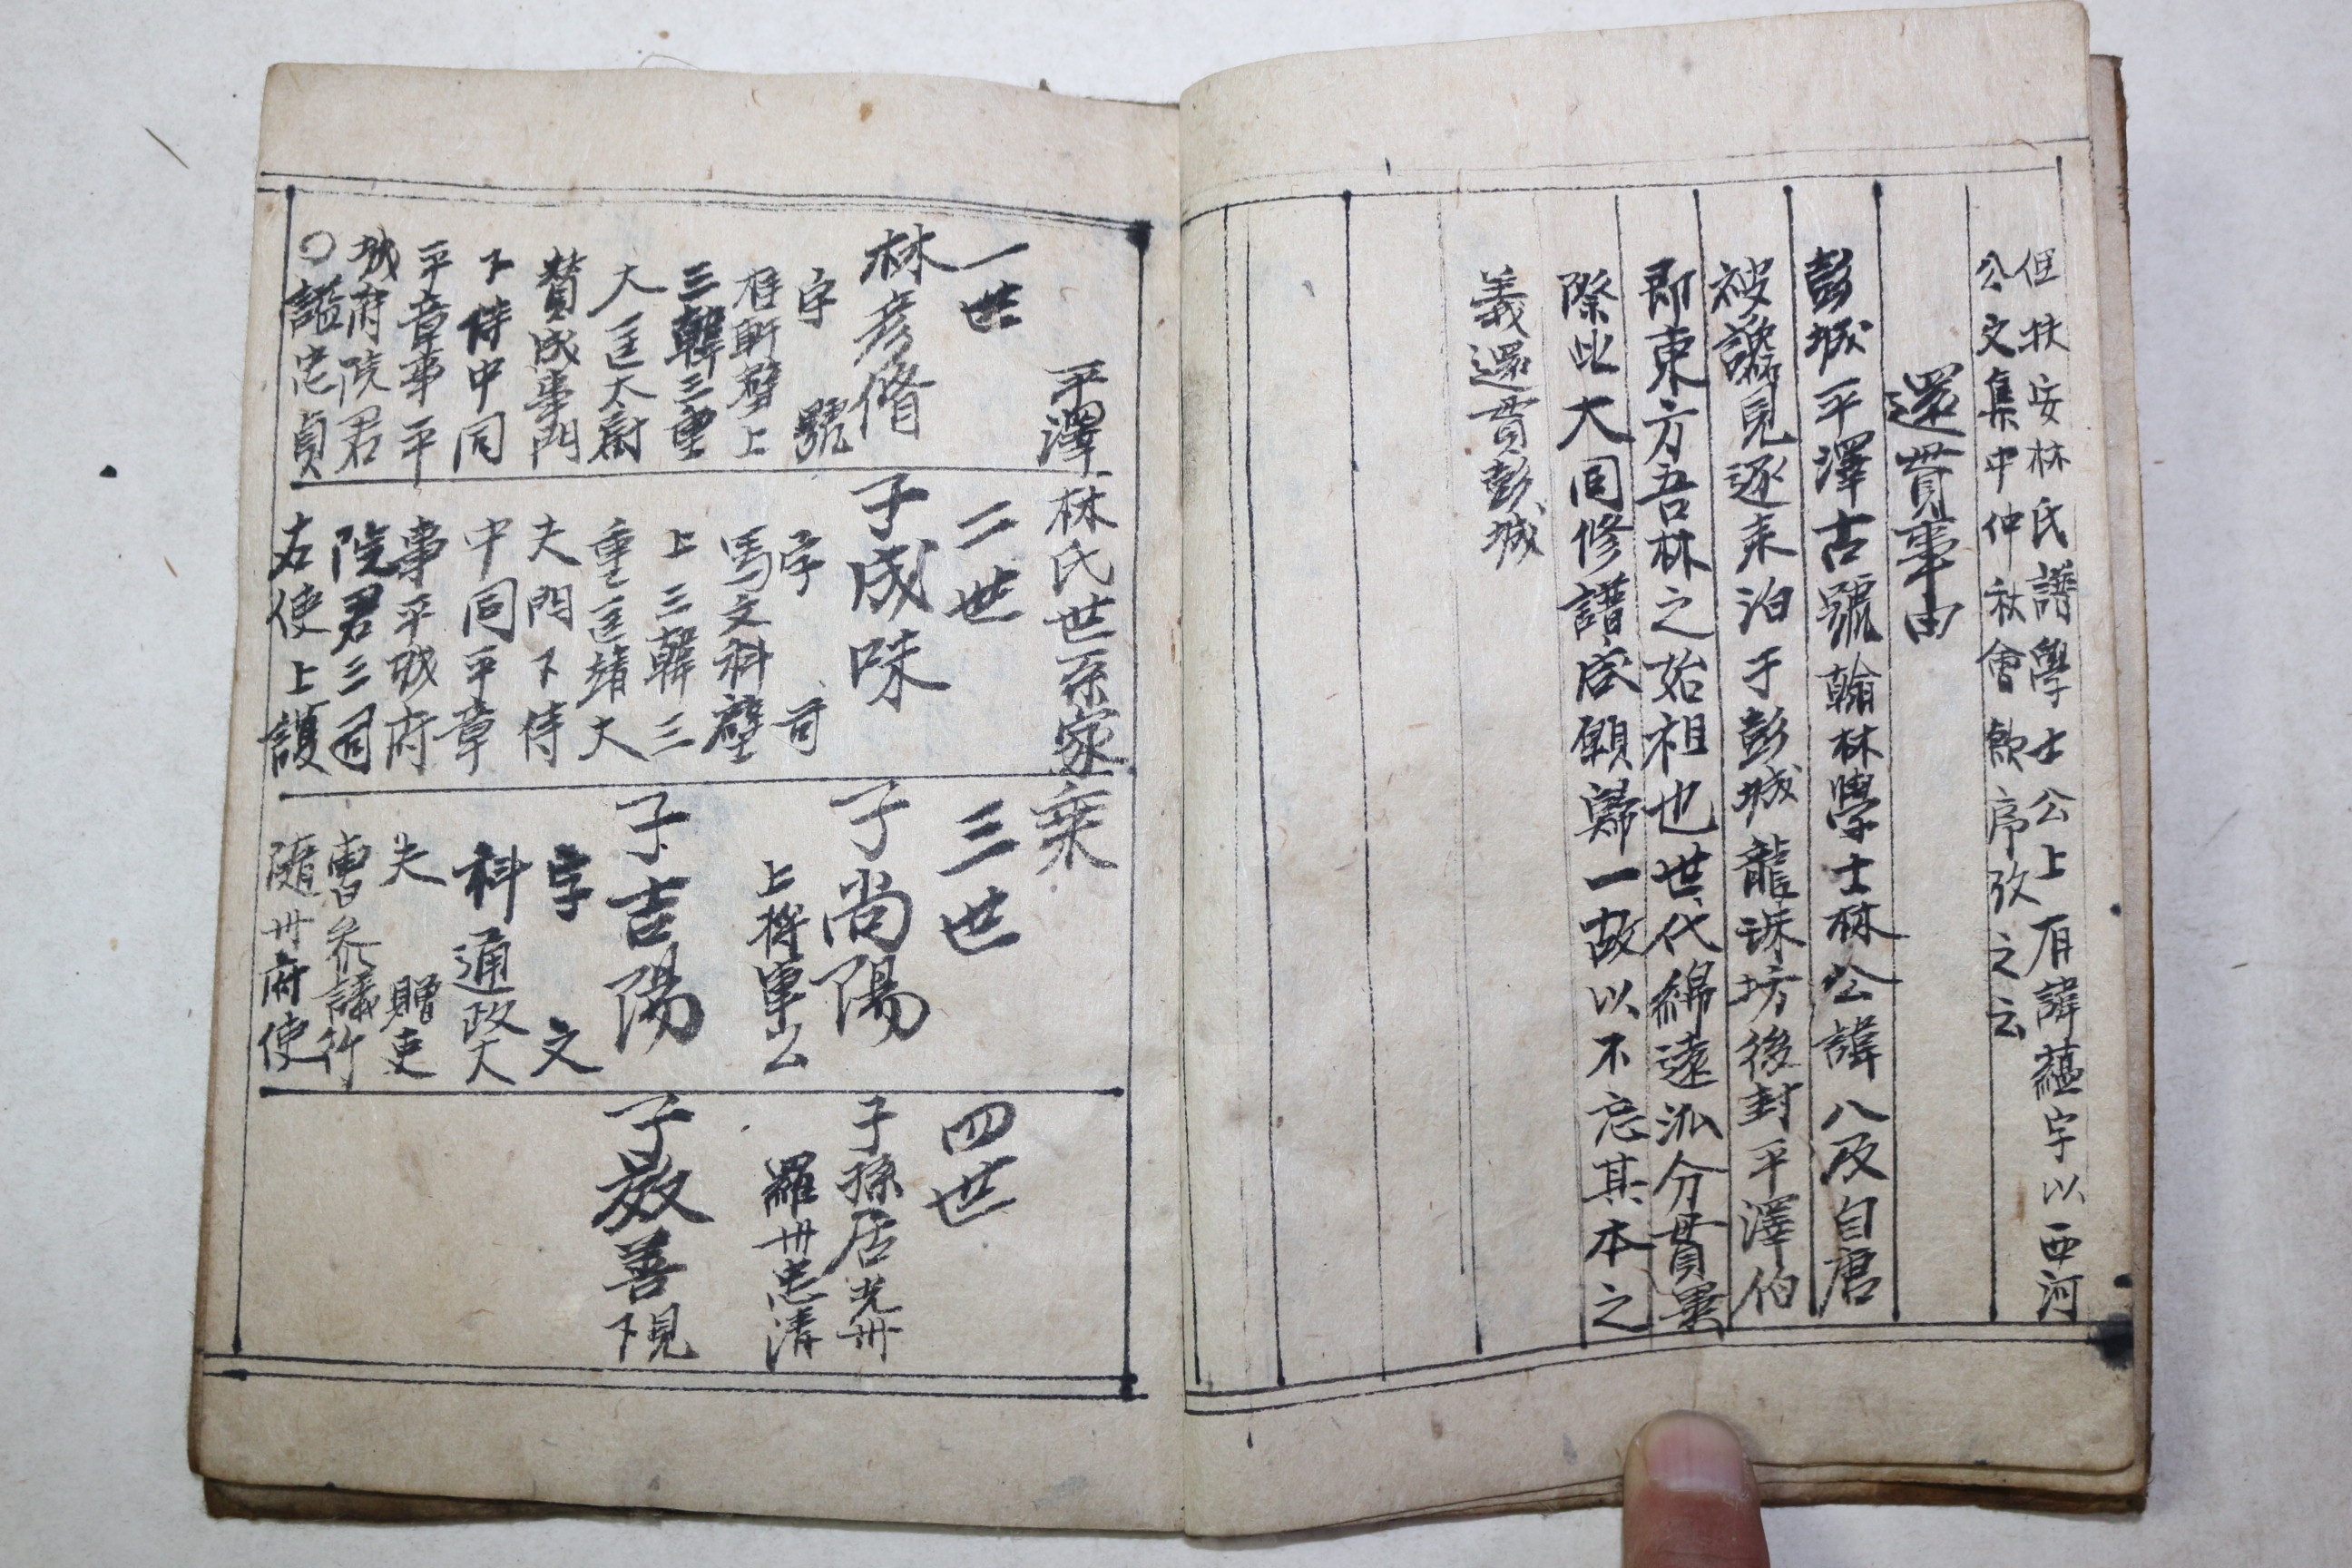 但扶安林氏譜學士公上有諱蘊字以西河
公文集中仲秋會飮序攷之云
還貫事由
彭城平澤古號翰林學士林公諱八及自唐
被讒見逐来泊于彭城龍珠坊後封平澤伯
即東方吾林之始祖也世代綿遠派分貫異
際此大同修譜啓願歸一故以不忘其本之
義還貫彭城
平澤林氏世系家乘
一世
林彦脩
字 號
軒壁上
三韓三重
大匡太尉
賛成事門
下侍中同
平章事平
城府院君
○諡忠貞
二世
子成味
字 可
馬文科壁
上三韓三
重匡靖大
夫門下侍
中同平章
事平城府
院君三司
右使上護
三世
子尚陽
上將軍公
子吉陽
字 文
科通政大
夫 贈吏
曹参議行
隨州府使
四世
子孫居光州
羅州忠清
子敖善下見